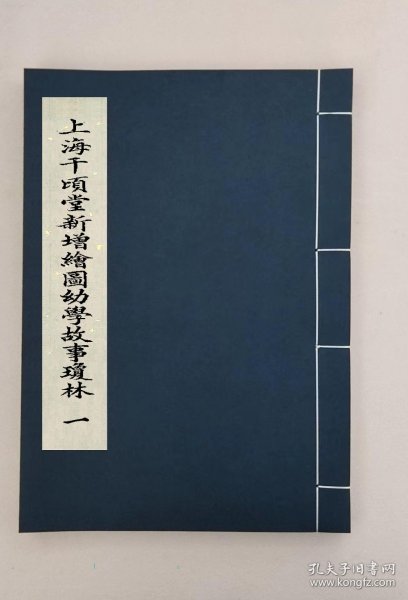 上海千頃堂新增繪圖幼學故事瓊林 一
孔夫子旧书网
www.kongfz.com